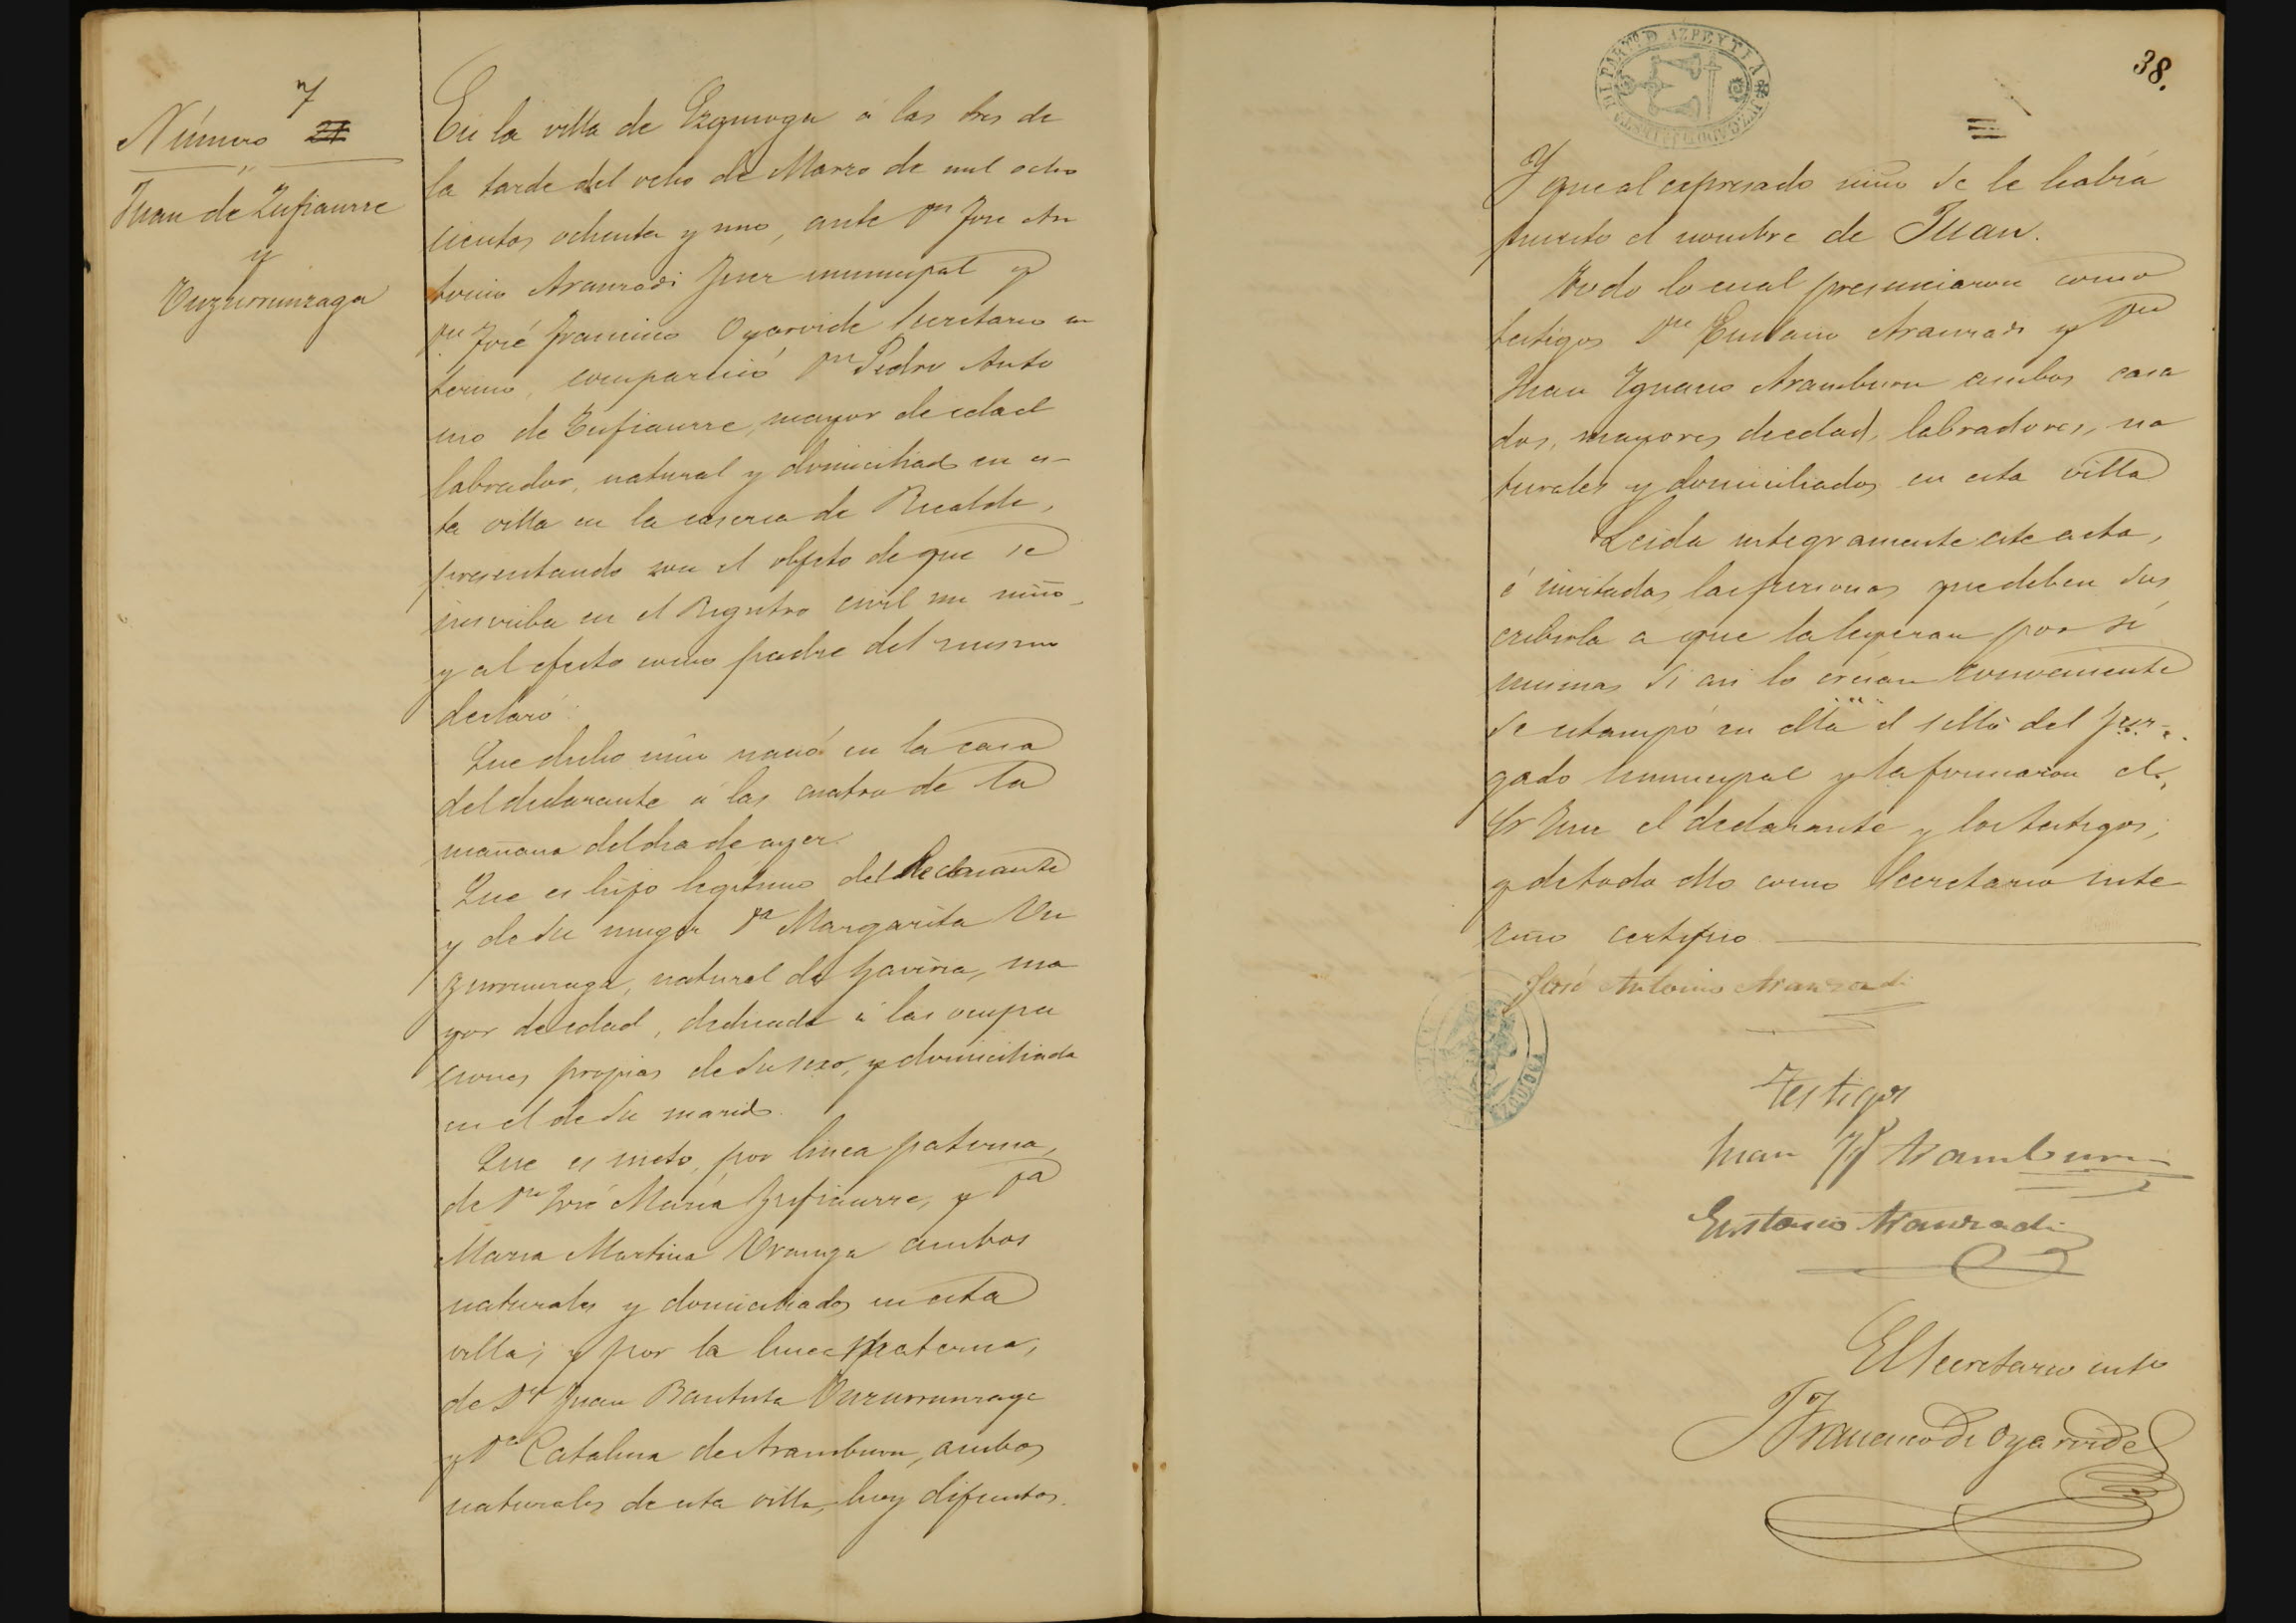 7
Número 21
Juan de Zufiaurre
y
Unzurrunzaga
En la villa de Ezquioga á las tres de
la tarde del ocho de Marzo de mil ocho
cientos ochenta y uno, ante Dn Jose An
tonio Aranzadi Juez municipal y
Dn José Francisco Oyarvide Secretario in
terino, compareció Dn Pedro Anto
nio de Zufiaurre, mayor de edad
labrador, natural y domiciliado en es-
ta villa en la caseria de Recalde,
presentando con el objeto de que se
inscriba en el Registro civil un niño,
y al efecto como padre del mismo
declaró:
Que dicho niño nació en la casa
del declarante á las cuatro de la
mañana del dia de ayer.
Que es hijo legítimo del declarante
y de su muger Da Margarita Un
zurrunzaga, natural de Gaviria, ma
yor de edad, dedicada á las ocupa
ciones propias de su sexo, y domiciliada
en el de su marido.
Que es nieto, por linea paterna,
de Dn José María Zufiaurre, y Da
Maria Martina Uranga ambos
naturales y domiciliados en esta
villa; y por la linea materna,
de Dn Juan Bautista Unzurrunzaga
y Da Catalina de Aramburu, ambos
naturales de esta villa, hoy difuntos.
38.
DEL PARTO. D AZPEYTIA
JUZGADO
Y que al expresado niño se le habia
puesto el nombre de Juan.
Todo lo cual presenciaron como
testigos Dn Eustasio Aranzadi y Dn
Juan Ygnacio Aramburu ambos casa
dos, mayores de edad, labradores, na
turales y domiciliados en esta villa
Leida integramente este acta,
é invitadas las personas que deben sus
cribirla a que la leyeran por sí
mismas si asi lo creian conveniente
se estampó en ella el sello del Juz-
gado municipal y la firmaron el
Sr Juez el declarante y los testigos,
y de todo ello como Secretario inte
rino certifico
José Antonio Aranzadi
EZQUIOGA
Testigos
Juan Yg Aramburu
Eustasio Aranzadi
El Secretario into
J Francisco de Oyarvide